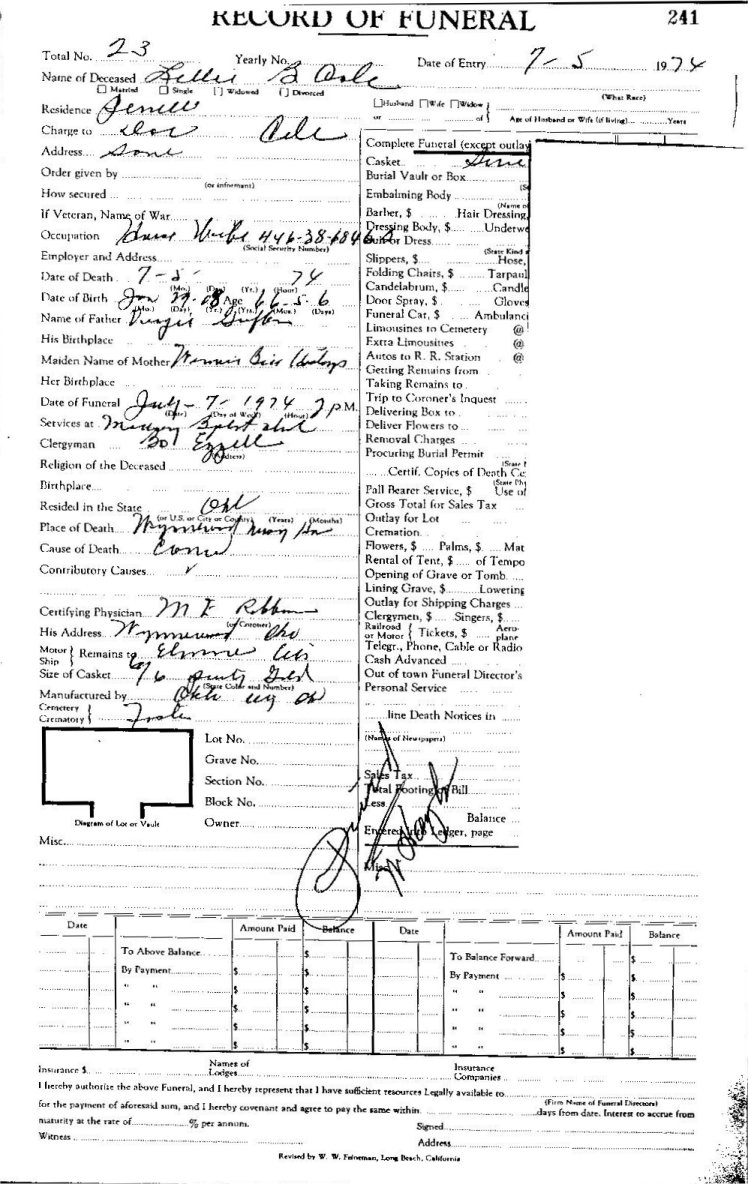 RECORD OF FUNERAL 241
Total No. 23 Yearly No. Date of Entry 7-5 1974
Name of Deceased B
Married Single Widowed Divorced
Husband Wife Widow (What Race)
or of Age of Husband or Wife (if living) Years
Residence
Charge to
Address
Order given by
(or informant)
How secured
If Veteran, Name of War
Occupation House Wife 446-38-684
(Social Security Number)
Employer and Address
Date of Death 7-5 74
(Mo.) (Day) (Yr.) (Hour)
Date of Birth Jan 29-08 Age 66-5-6
(Mo.) (Day) (Yr.) (Yrs.) (Mos.) (Days)
Name of Father
His Birthplace
Maiden Name of Mother
Her Birthplace
Date of Funeral July-7-1974 2 P.M.
(Date) (Day of Week) (Hour)
Services at Baptist
Clergyman Bo Ezzell
(Address)
Religion of the Deceased
Birthplace
Resided in the State Okl
(or U.S. or City or County) (Years) (Months)
Place of Death Wynnewood
Cause of Death
Contributory Causes
Certifying Physician M
(or Coroner)
His Address Wynnewood
Motor Ship Remains to Elmore
Size of Casket 6/6 Gold
(State Color and Number)
Manufactured by Okla
Cemetery
Crematory
Complete Funeral (except outlay
Casket
Burial Vault or Box
Embalming Body
(Name of
Barber, $ Hair Dressing,
Dressing Body, $ Underwe
Suit or Dress
(State Kind
Slippers, $ Hose,
Folding Chairs, $ Tarpaul
Candelabrum, $ Candle
Door Spray, $ Gloves
Funeral Car, $ Ambulanci
Limousines to Cemetery @
Extra Limousines @
Autos to R. R. Station @
Getting Remains from
Taking Remains to
Trip to Coroner's Inquest
Delivering Box to
Deliver Flowers to
Removal Charges
Procuring Burial Permit
(State
Certif. Copies of Death Ce
(State Ph
Pall Bearer Service, $ Use of
Gross Total for Sales Tax
Outlay for Lot
Cremation
Flowers, $ Palms, $ Mat
Rental of Tent, $ of Tempo
Opening of Grave or Tomb
Lining Grave, $ Lowering
Outlay for Shipping Charges
Clergymen, $ Singers, $
Railroad or Motor Tickets, $ Aero-plane
Telegr., Phone, Cable or Radio
Cash Advanced
Out of town Funeral Director's
Personal Service
line Death Notices in
(Names of Newspapers)
Sales Tax
Total Footing of Bill
Less
Balance
Entered into Ledger, page
Misc.
Lot No.
Grave No.
Section No.
Block No.
Owner
Diagram of Lot or Vault
Misc.
Date Amount Paid Balance Date Amount Paid Balance
To Above Balance $ To Balance Forward $
By Payment $ $ By Payment $ $
" " $ $ " " $ $
" " $ $ " " $ $
" " $ $ " " $ $
" " $ $ " " $ $
Insurance $ Names of Lodges Insurance Companies
I hereby authorize the above Funeral, and I hereby represent that I have sufficient resources Legally available to
(Firm Name of Funeral Directors)
for the payment of aforesaid sum, and I hereby covenant and agree to pay the same within days from date. Interest to accrue from
maturity at the rate of % per annum. Signed
Witness Address
Revised by W. W. Feineman, Long Beach, California